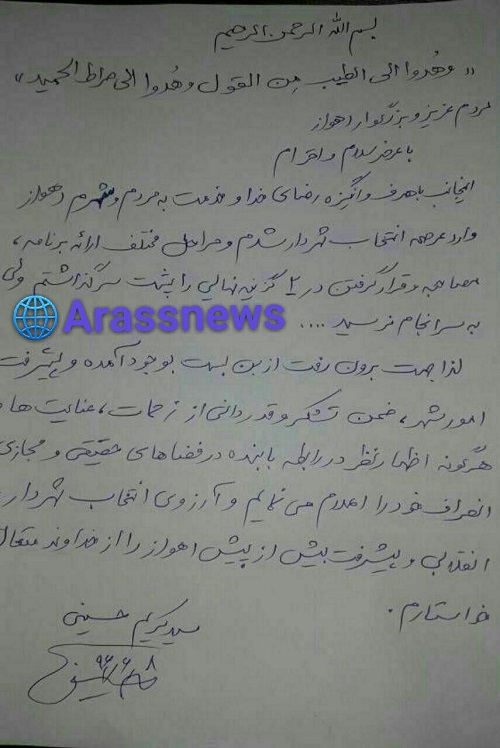 بسم الله الرحمن الرحیم
« وهُدوا الی الطیب مِن القول وهُدوا الی صراط الحمید »
مردم عزیز و بزرگوار اهواز
با عرض سلام و احترام
اینجانب با هدف و انگیزه رضای خدا و خدمت به مردم و شهرم اهواز
وارد عرصه انتخاب شهردار شدم و مراحل مختلف ارائه برنامه،
مصاحبه و قرار گرفتن در ۲ گزینه نهایی را پشت سر گذاشتم ولی
به سرانجام نرسید ....
Arassnews
لذا جهت برون رفت از بن بست بوجود آمده و پیشرفت
امور شهر، ضمن تشکر و قدردانی از زحمات، عنایت ها و
هرگونه اظهار نظر در رابطه با بنده در فضاهای حقیقی و مجازی
انصراف خود را اعلام می نمایم و آرزوی انتخاب شهردار
انقلابی و پیشرفت بیش از پیش اهواز را از خداوند متعال
خواستارم.
سید کریم حسینی
۹۶/۶/۸